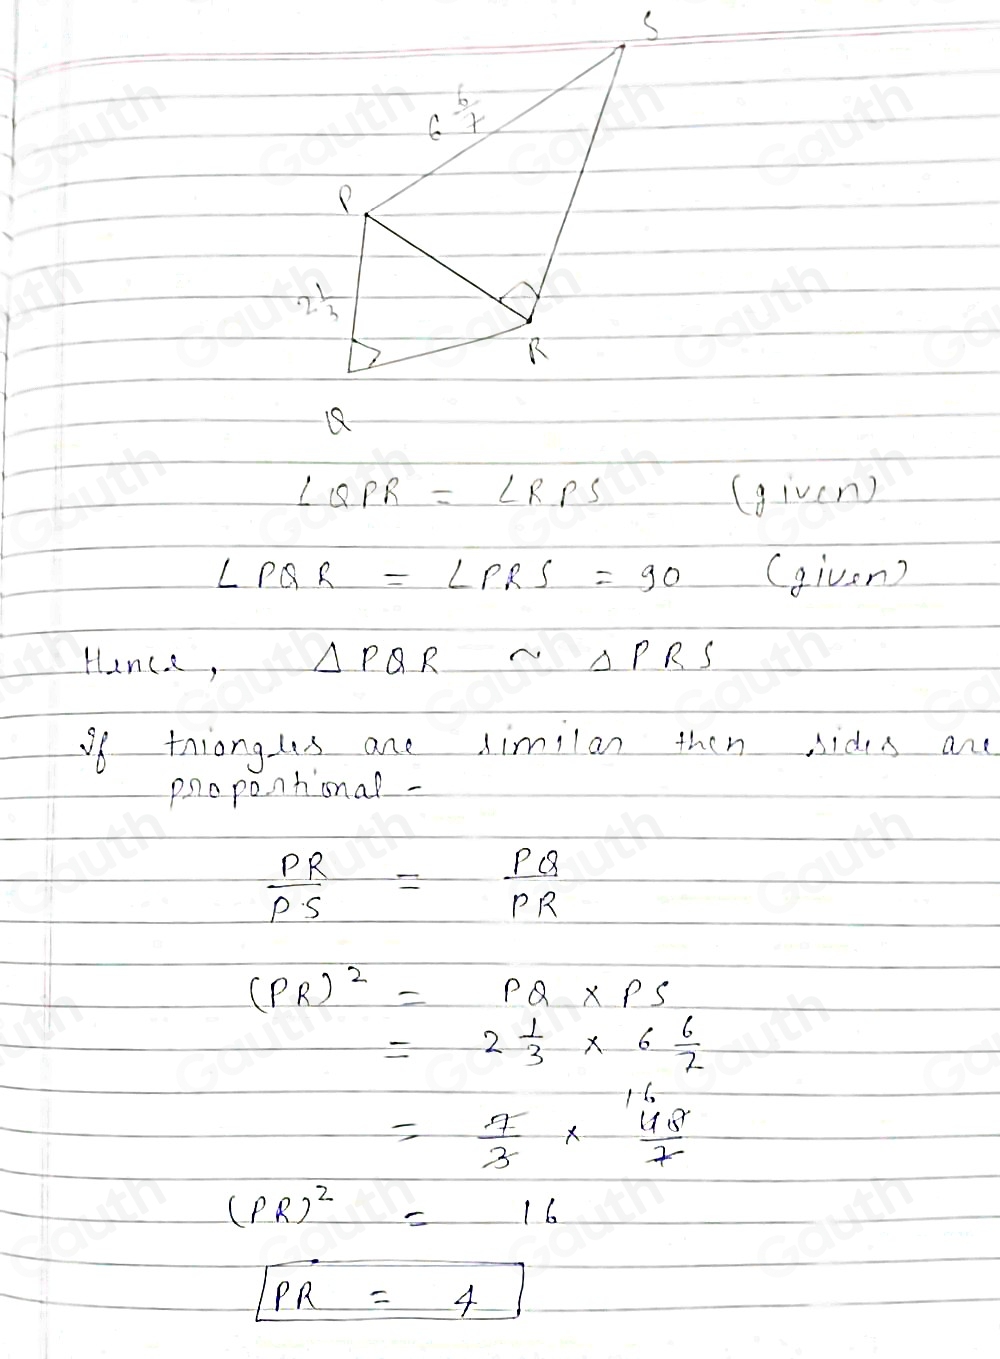 S
6 6/7
P
2 1/3
R
Q
∠QPR = ∠RPS (given)
∠PQR = ∠PRS = 90 (given)
Hence, ΔPQR ~ ΔPRS
If triangles are similar then sides are
proportional -
PR/PS = PQ/PR
(PR)² = PQ × PS
= 2 1/3 × 6 6/7
16
= 7/3 × 48/7
(PR)² = 16
PR = 4
Gauth